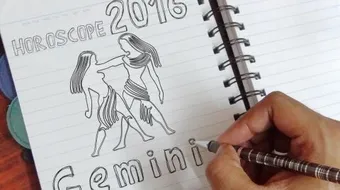 HOROSCOPE 2016
Gemini